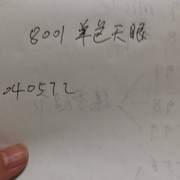 8001 单色天眼
040572